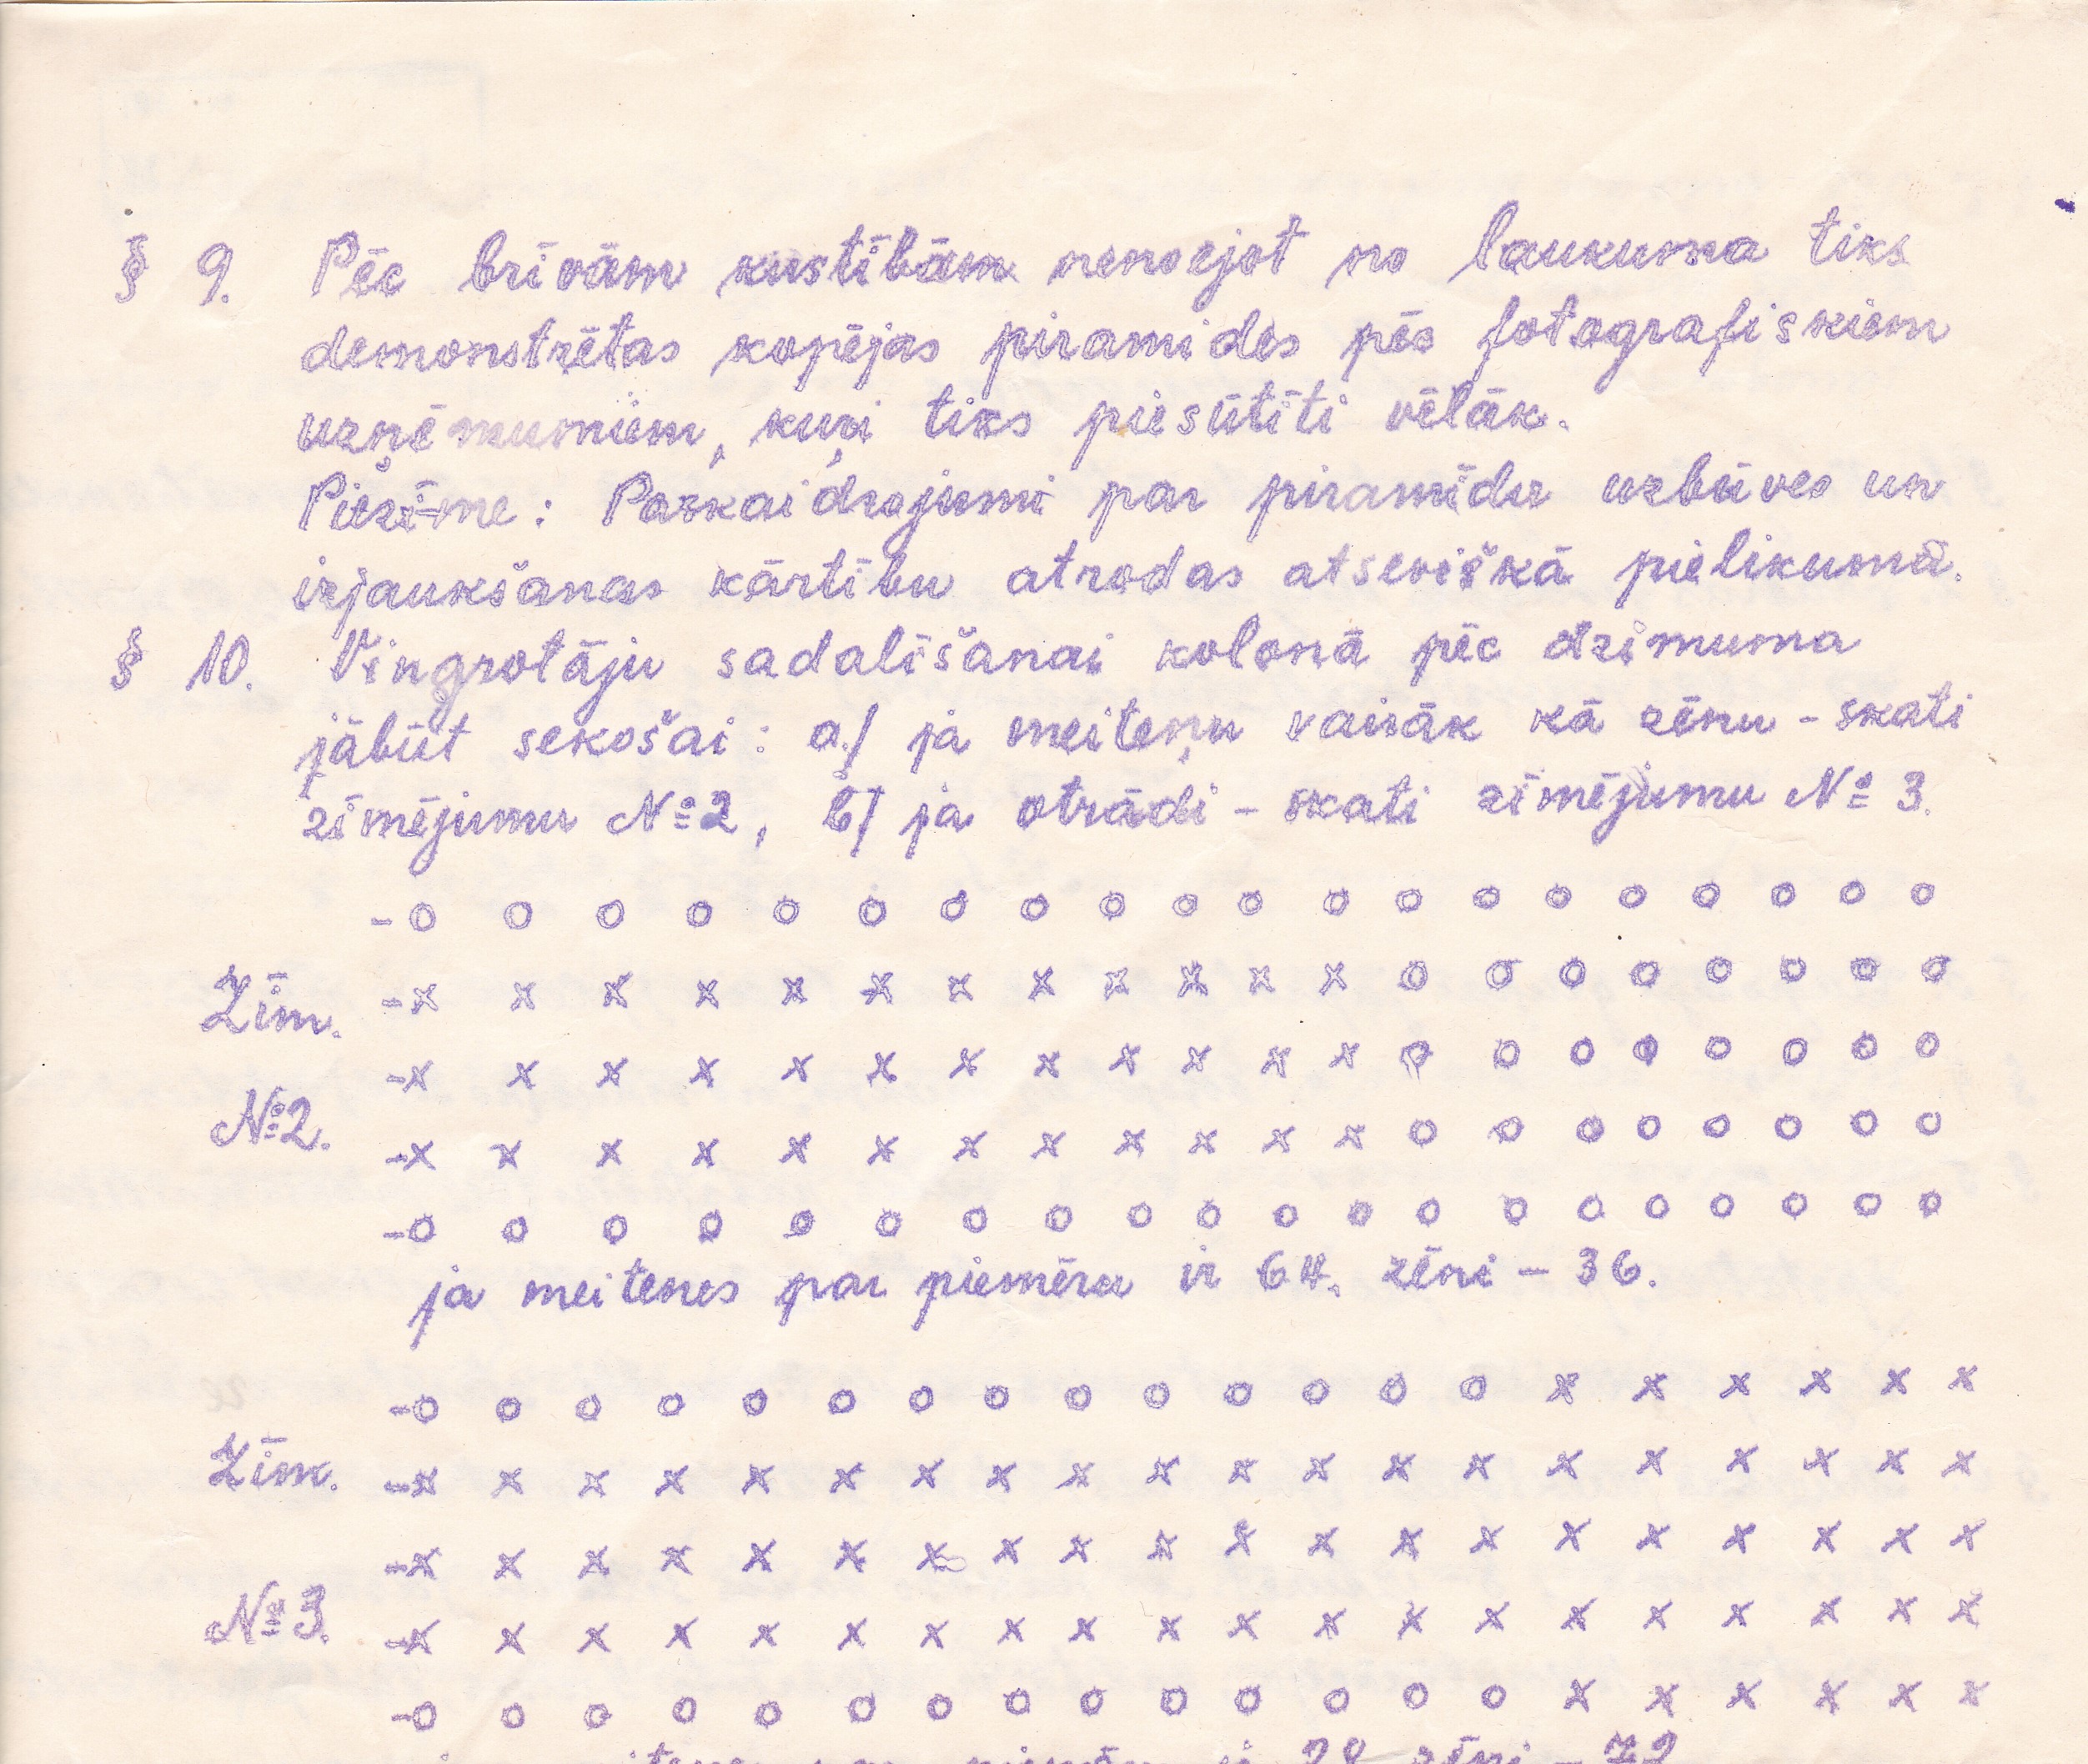 § 9. Pēc brīvām kustībām nenoejot no laukuma tiks
demonstrētas kopējas piramides pēc fotografiskiem
uzņēmumiem, kuŗi tiks piesūtīti vēlāk.
Piezīme: Paskaidrojumi par piramīdu uzbūves un
izjaukšanas kārtību atrodas atsevišķā pielikumā.
§ 10. Vingrotāju sadalīšanai kolonā pēc dzimuma
jābūt sekošai: a/ ja meiteņu vairāk kā zēnu - skati
zīmējumu № 2, b/ ja otrādi - skati zīmējumu № 3.
- o o o o o o o o o o o o o o o o o o o o
Zīm. - x x x x x x x x x x x x o o o o o o o o
- x x x x x x x x x x x x o o o o o o o o
№ 2. - x x x x x x x x x x x x o o o o o o o o
- o o o o o o o o o o o o o o o o o o o o
ja meitenes par piemēru ir 64, zēni - 36.
- o o o o o o o o o o o o o o x x x x x x
Zīm. - x x x x x x x x x x x x x x x x x x x x
- x x x x x x x x x x x x x x x x x x x x
№ 3. - x x x x x x x x x x x x x x x x x x x x
- o o o o o o o o o o o o o o x x x x x x
ja meitenes par piemēru ir 28 zēni - 72